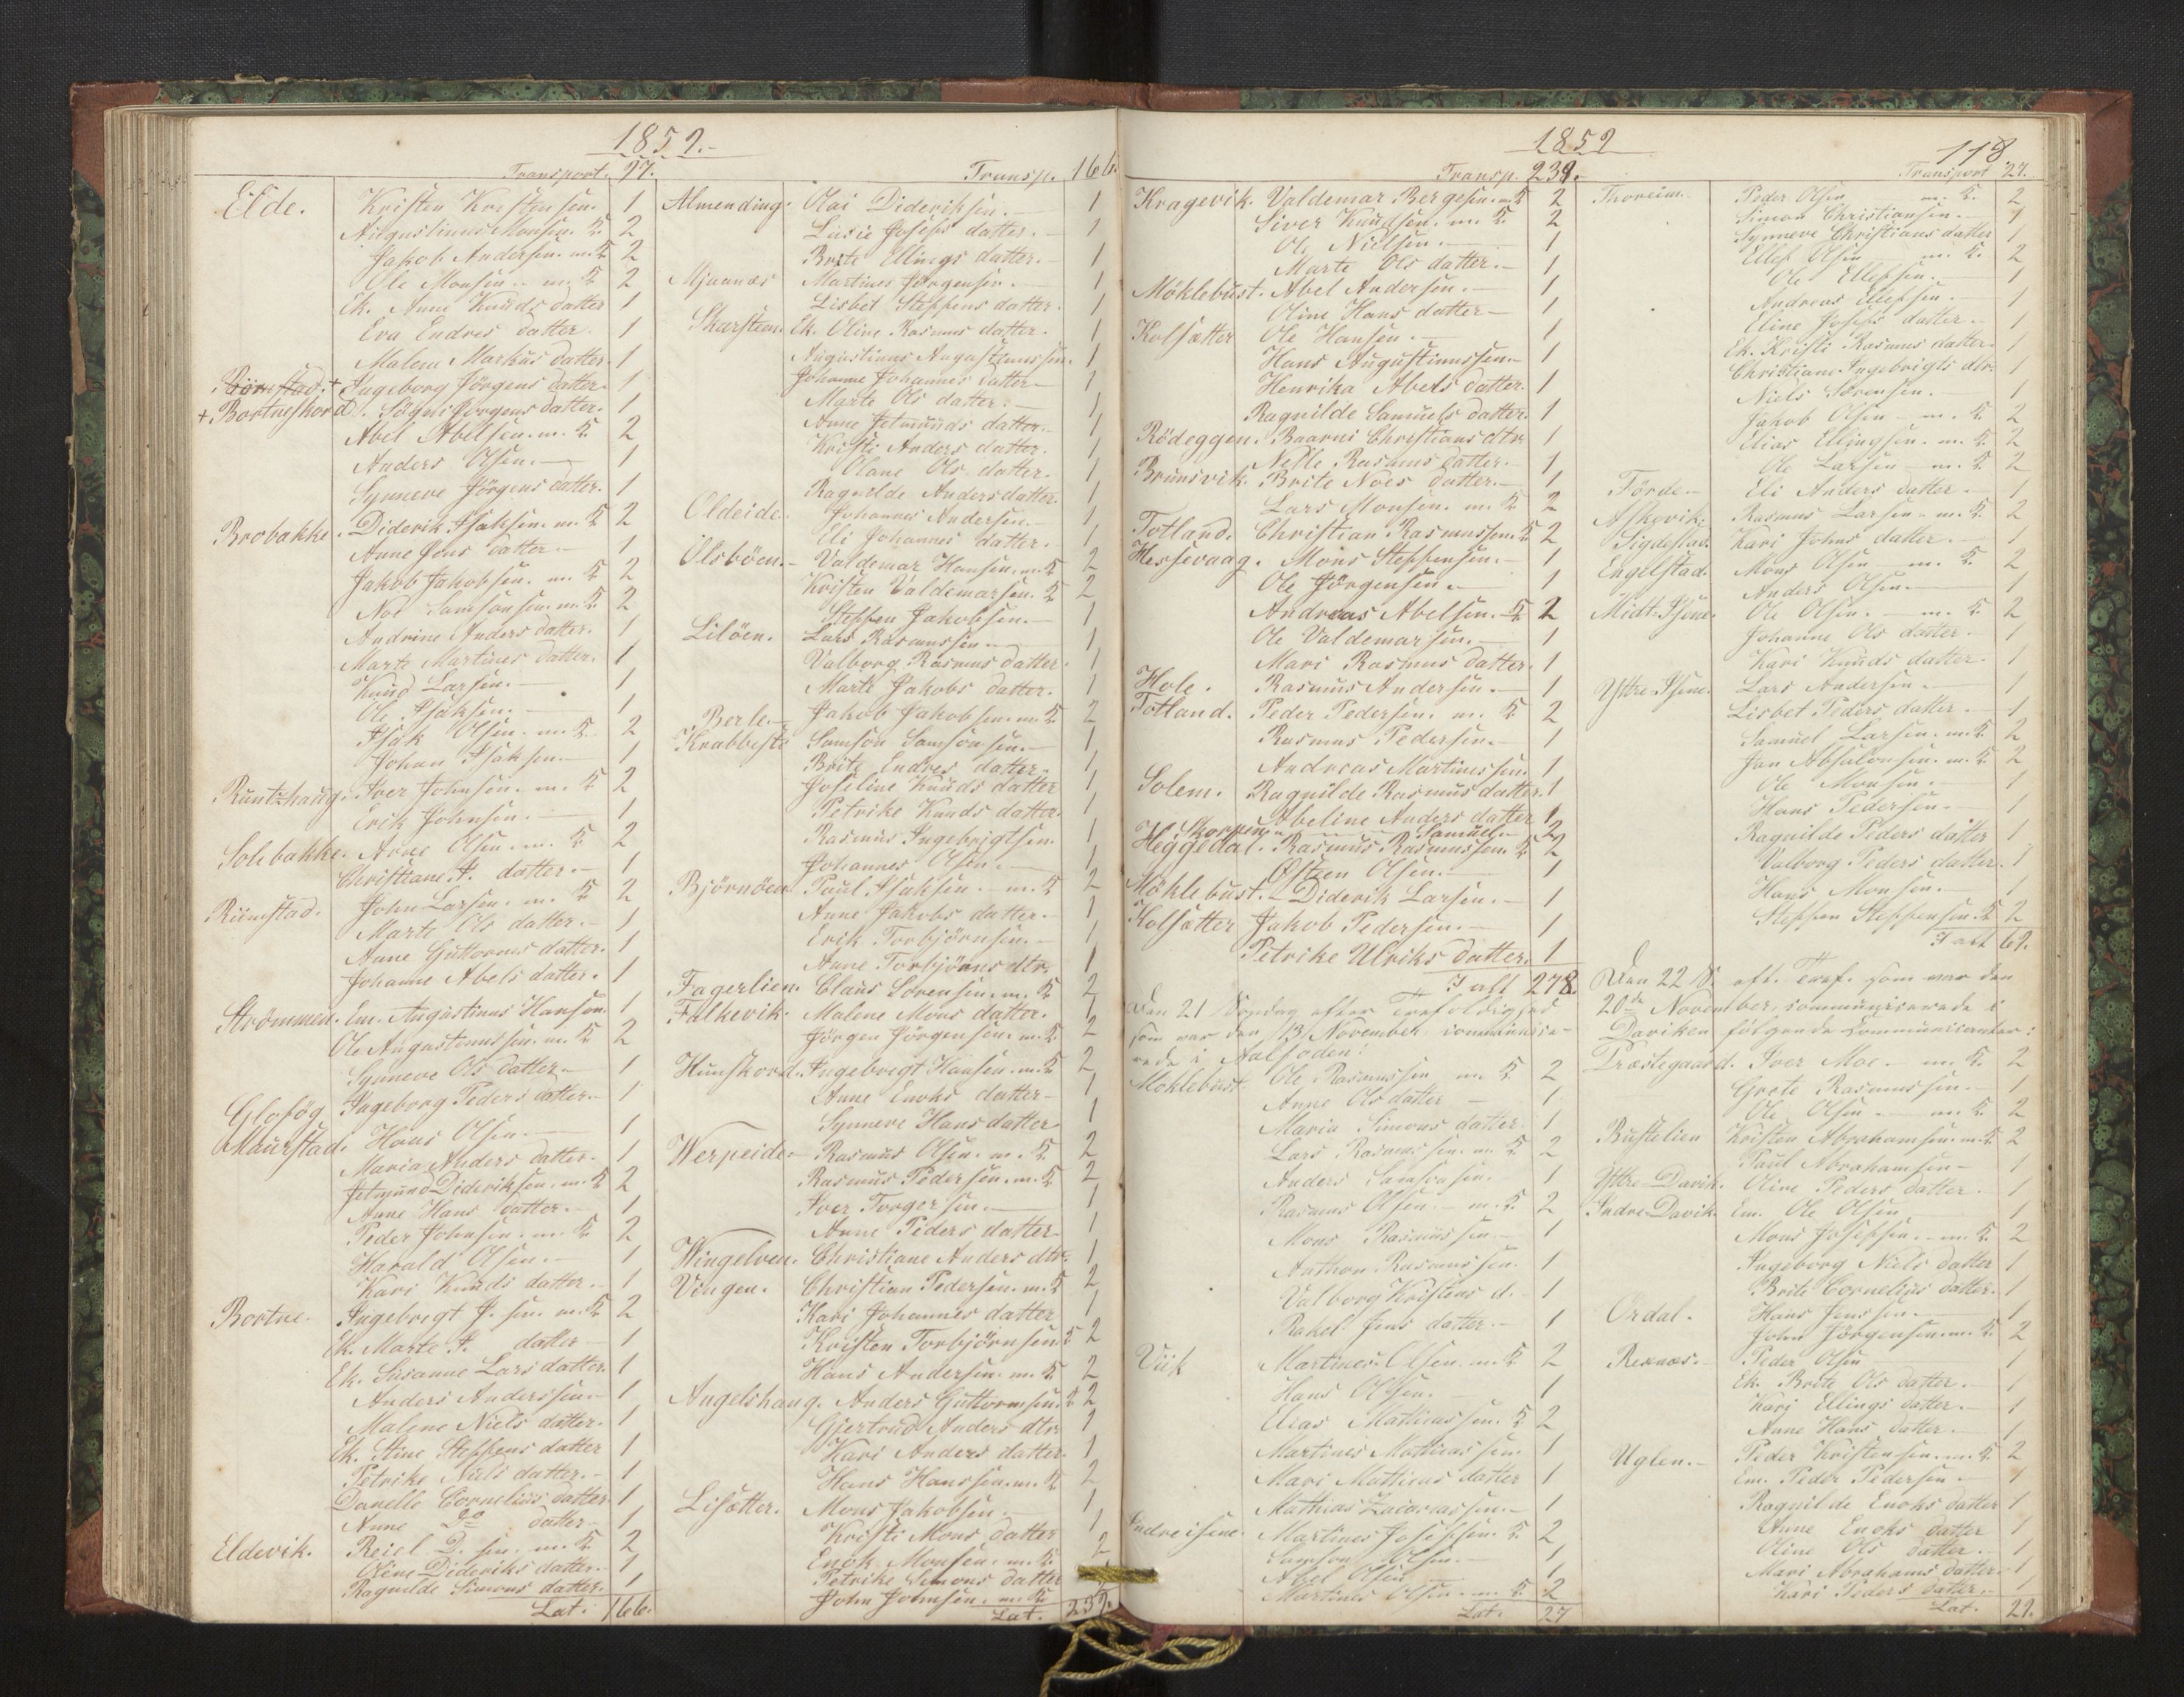 1852.
Transport. 97.
Elde. Kristen Kristensen. 1
Augustinus Monsen. K. 2
Jakob Andersen. m. K. 2
Ole Monsen. m. K. 2
Ek. Anne Knuds datter 1
Eva Endres datter. 1
Malene Markus datter. 1
Ingeborg Jörgens datter. 1
+ Bortneskord. Jörgens datter. 1
Abel Abelsen. m. K. 2
Anders Olsen. 1
Synneve Jörgens datter. 1
Brobakke. Diderik Isaksen. m. K. 2
Anne Jons datter. 1
Jakob Jakobsen. m. K. 2
Noe Samsonsen. m. K. 2
Andrine Anders datter. 1
Marte Martines datter. 1
Knud Larsen. 1
Ole Isaksen. 1
Isak Olsen. m. K. 2
Johan Isaksen. 1
Runtzhaug. Iver Johnsen. m. K. 2
Erik Johnsen. 1
Solebakke. Arne Olsen. m. K. 2
Christiane J. datter. 1
Rimstad. John Larsen. m. K. 2
Marte Ols datter. 1
Anne Guttorms datter. 1
Johanne Abels datter. 1
Strömmen. Em. Augustinus Hansen. 1
Ole Augustinussen. m. K. 2
Synneve Ols datter. 1
Ingeborg Peders datter. 1
Maurstad. Hans Olsen. 1
Maria Anders datter. 1
Jetmund Dideriksen. m. K. 2
Anne Hans datter. 1
Peder Johnsen. m. K. 2
Harald Olsen. 1
Kari Knuds datter. 1
Bortne. Ingebrigt J. sen. m. K. 2
Ek. Marte J. datter 1
Ek. Susanne Lars datter. 1
Anders Anderssen. 1
Malene Niels datter. 1
Ek. Stine Steffens datter 1
Petrike Niels datter. 1
Danelle Cornelius datter. 1
Anne Do datter 1
Eldevik. Reiel D. sen. m. K. 2
Oline Dideriks datter. 1
Ragnilde Simons datter. 1
Lat. 166.
Transp. 166.
Almending. Olai Dideriksen. 1
Lusie Josefs datter. 1
Brite Ellings datter. 1
Martines Jörgensen. 1
Lisbet Steffens datter. 1
Skarstein. Ek. Oline Rasmus datter. 1
Augustinus Augustinussen. 1
Johanne Johannes datter. 1
Marte Ols datter. 1
Anne Jetmunds datter. 1
Kristi Anders datter. 1
Olane Ols datter. 1
Ragnilde Anders datter. 1
Oldeide. Johannes Andersen. 1
Eli Johannes datter. 1
Olsböen. Valdemar Hansen. m. K. 2
Kristen Valdemarsen. K. 2
Steffen Jakobsen. 1
Lilöen. Lars Rasmussen. 1
Valborg Rasmus datter. 1
Marte Jakobs datter. 1
Berle. Jakob Jakobsen. m. K. 2
Krabbestö Samson Samsonsen. 1
Brite Endres datter. 1
Joseline Knuds datter 1
Petrike Knuds datter. 1
Rasmus Ingebrigtsen. 1
Johannes Olsen. 1
Björnöen Paul Isaksen. m. K. 2
Anne Jakobs datter. 1
Erik Torbjörnsen. 1
Anne Torbjörns dtr. 1
Fagerlien. Claus Sörensen. m. K. 2
Falkevik. Malene Mons datter. 1
Jörgen Jörgensen. m. K. 2
Hunskord. Ingebrigt Hansen. m. K. 2
Anne Enoks datter 1
Synneve Hans datter 1
Werpeide. Rasmus Olsen. m. K. 2
Rasmus Pedersen. m. K. 2
Iver Torgersen. 1
Anne Peders datter 1
Wingelven. Christiane Anders dtr. 1
Vingen. Christian Pedersen. m. K. 2
Kari Johannes datter 1
Kristen Torbjörnsen. K. 2
Hans Andersen. m. K. 2
Angelshaug. Anders Guttormsen. K. 2
Gjertrud Anders dtr. 1
Kari Anders datter. 1
Hans Hanssen. m. K. 2
Lisætter. Mons Jakobsen. 1
Kristi Mons datter 1
Enok Monsen. m. K. 2
Petrike Simons datter
John Johnsen. m. K.
Lat. 239.
1852
118.
Transp. 239.
Kragevik. Valdemar Bergesen. m. K. 2
Siver Knudsen. m. K. 2
Ole Nielsen. 1
Marte Ols datter. 1
Möklebust. Abel Andersen. 1
Oline Hans datter 1
Kolsætter Ole Hansen. 1
Hans Augustinussen. 1
Henrika Abels datter. 1
Ragnilde Samuels datter. 1
Rödeggen. Baarni Christians dtr. 1
Nelle Rasmus datter. 1
Brunsvik. Brite Noes datter. 1
Lars Monsen. m. K. 2
Totland. Christian Rasmussen. K. 2
Hessevaag. Mons Steffensen. 1
Ole Jörgensen. 1
Andreas Abelsen. K. 2
Ole Valdemarsen. 1
Mari Rasmus datter. 1
Hole. Rasmus Andersen. 1
Totland. Peder Pedersen. m. K. 2
Rasmus Pedersen. 1
Andreas Martinessen. 1
Solem. Ragnilde Rasmus datter. 1
Abeline Anders datter 1
Samuel 2
Heggedal. Rasmus Rasmussen. K. 2
Östen Olsen. 1
Möklebust. Diderik Larsen. 1
Kolsætter Jakob Pedersen. 1
Petrike Ulriks datter. 1
I alt 278.
Den 21 Söndag efter Trefoldighed
som var den 13 November communice-
rede i Aalfoden:
Möklebust. Ole Rasmussen m. K. 2
Anne Ols datter 1
Maria Simons datter. 1
Lars Rasmussen. m. K. 2
Anders Samsonsen. 1
Rasmus Olsen. m. K. 2
Mons Rasmussen. 1
Nathan Rasmussen. 1
Valborg Kristens d. 1
Rakel Jens datter. 1
Viik Martines Olsen. m. K. 2
Hans Olsen. 1
Elias Mathiassen. K. 2
Martines Mathiassen 1
Mari Mathias datter 1
Mathias Zacariassen. 1
Indreisene. Martines Josefsen. K. 2
Samson Olsen. 1
Abel Olsen 1
Martines Olsen. m. K. 2
Lat. 27
Transport 27.
Thoreim. Peder Olsen m. K. 2
Simon Christiansen. 1
Synneve Christians datter 1
Ellef Olsen m. K. 2
Ole Ellefsen. 1
Andreas Ellefsen. 1
Oline Josefs datter. 1
Ek. Kristi Rasmus datter. 1
Christiane Ingebrigts dtr. 1
Niels Sörensen. 1
Jakob Olsen m. K. 2
Elias Ellingsen. m. K. 2
Ole Larsen m. K. 2
Förde. Eli Anders datter. 1
Askevik. Rasmus Larsen. m. K. 2
Sigdestad. Kari Johns datter. 1
Engelstad. Mons Olsen m. K. 2
Anders Olsen. 1
Midt-Isene. Ole Olsen. m. K. 2
Johanne Ols datter. 1
Kari Knuds datter. 1
Yttre-Isene. Lars Andersen. 1
Lisbet Peders datter. 1
Samuel Larsen. m. K. 2
Jan Absalonsen. m. K. 2
Ole Monsen. 1
Hans Pedersen. 1
Ragnilde Peders datter 1
Valborg Peders datter. 1
Hans Monsen. 1
Steffen Steffensen. K. 2
I alt 69.
Den 22 S. eft. Tref. som var den
20de November, communicerede i
Daviken følgende Communicanter:
Præstegaard. Iver Moe. m. K. 2
Grete Rasmussen. 1
Ole Olsen. m. K. 2
Bustelien Kristen Abrahamsen. m. K. 2
Paul Abrahamsen 1
Yttre-Davik. Oline Peders datter. 1
Indre-Davik. Em. Ole Olsen 1
Mons Josefsen. m. K. 2
Ingeborg Niels datter 1
Brite Cornelius datter. 1
Ordal. Hans Jenssen. 1
John Jörgensen. m. K. 2
Rexnæs. Peder Olsen 1
Ek. Brite Ols datter. 1
Kari Ellings datter. 1
Anne Hans datter. 1
Uglen. Peder Kristensen. m. K. 2
Em. Peder Pedersen. 1
Ragnilde Enoks datter 1
Anne Enoks datter 1
Oline Ols datter. 1
Mari Abrahams datter. 1
Kari Peders datter. 1
Lat. 29.